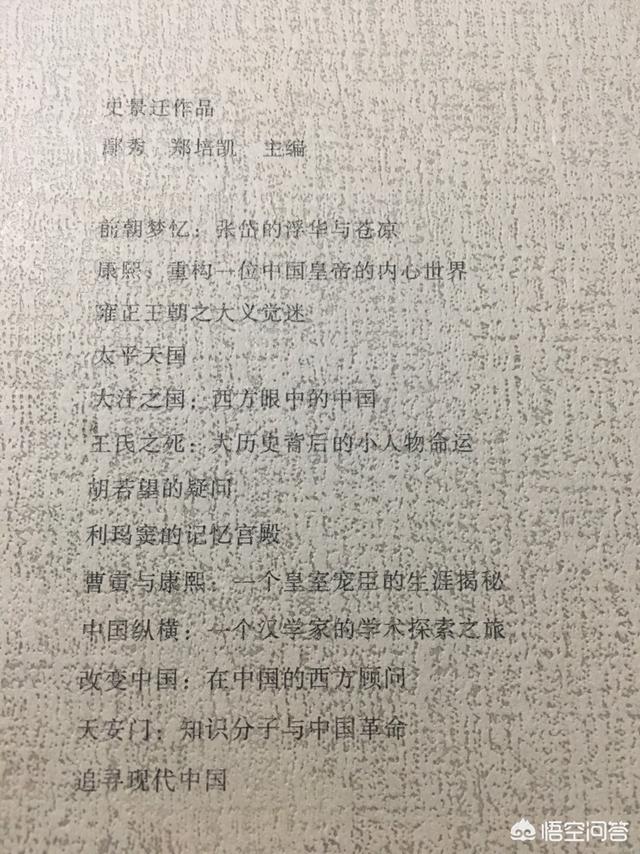 史景迁作品
鄢秀 郑培凯 主编
前朝梦忆：张岱的浮华与苍凉
康熙：重构一位中国皇帝的内心世界
雍正王朝之大义觉迷
太平天国
大汗之国：西方眼中的中国
王氏之死：大历史背后的小人物命运
胡若望的疑问
利玛窦的记忆宫殿
曹寅与康熙：一个皇室宠臣的生涯揭秘
中国纵横：一个汉学家的学术探索之旅
改变中国：在中国的西方顾问
天安门：知识分子与中国革命
追寻现代中国
悟空问答